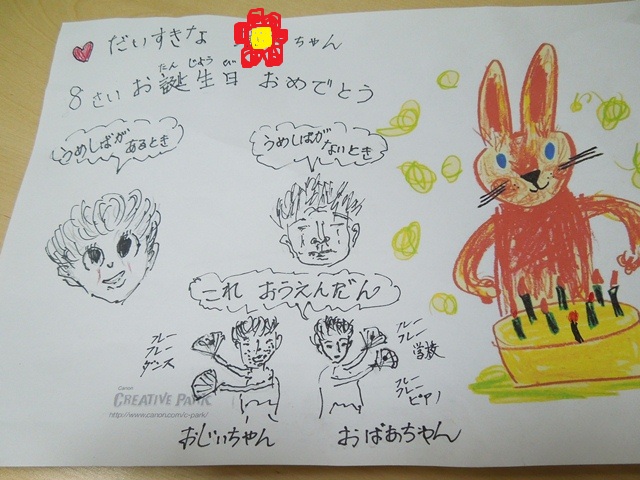 だいすきな ちゃん
8さい お誕生日 おめでとう
たんじょうび
うめしばが あるとき
うめしばが ないとき
これ おうえんだん
フレー
フレー
ダンス
フレー
フレー
学校
フレー
フレー
ピアノ
おじいちゃん
おばあちゃん
Canon
CREATIVE PARK
http://www.canon.com/c-park/